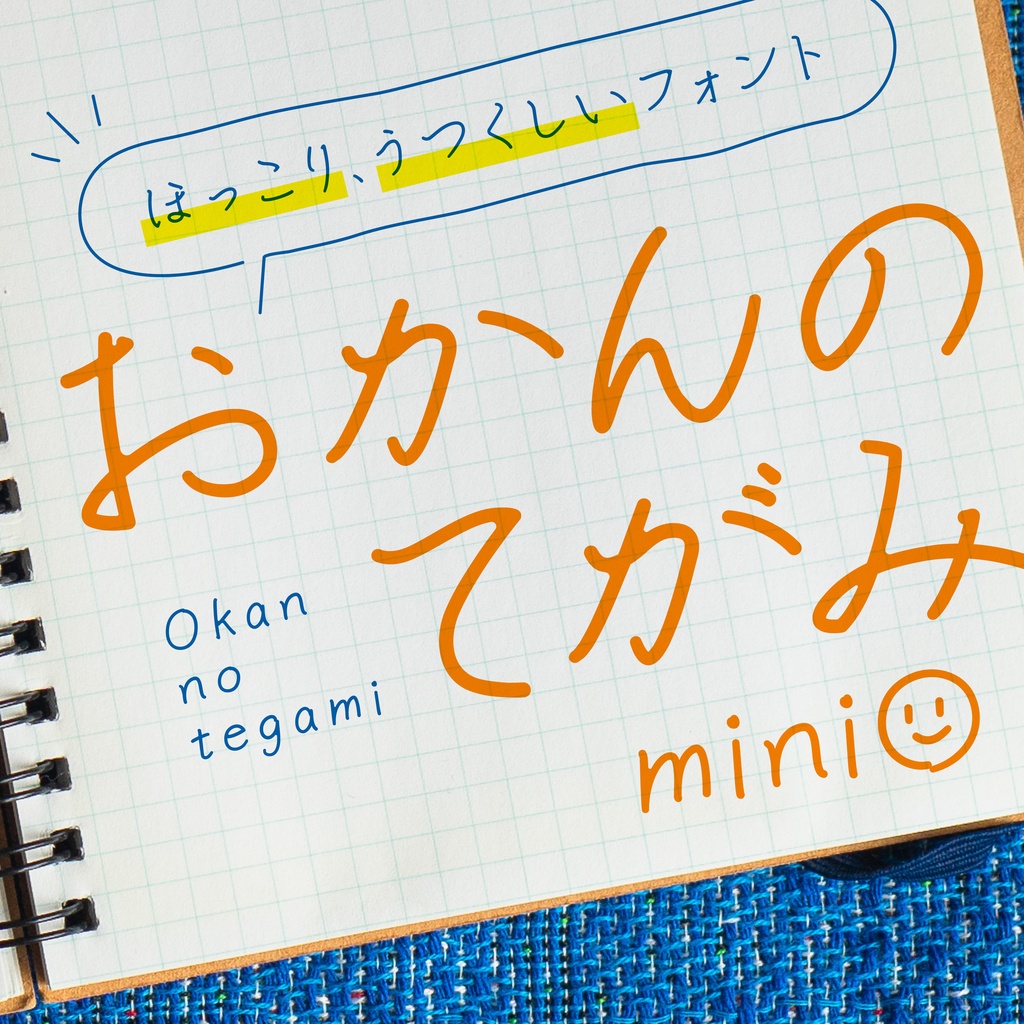 ほっこり、うつくしいフォント
おかんの
てがみ
Okan
no
tegami
mini